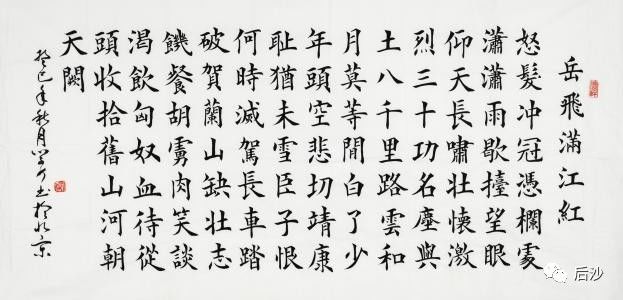 岳飛滿江紅
怒髮冲冠憑欄處
瀟瀟雨歇擡望眼
仰天長嘯壯懷激
烈三十功名塵與
土八千里路雲和
月莫等閒白了少
年頭空悲切靖康
耻猶未雪臣子恨
何時滅駕長車踏
破賀蘭山缺壯志
饑餐胡虜肉笑談
渴飲匈奴血待從
頭收拾舊山河朝
天闕
癸巳年秋月书於北京
后沙